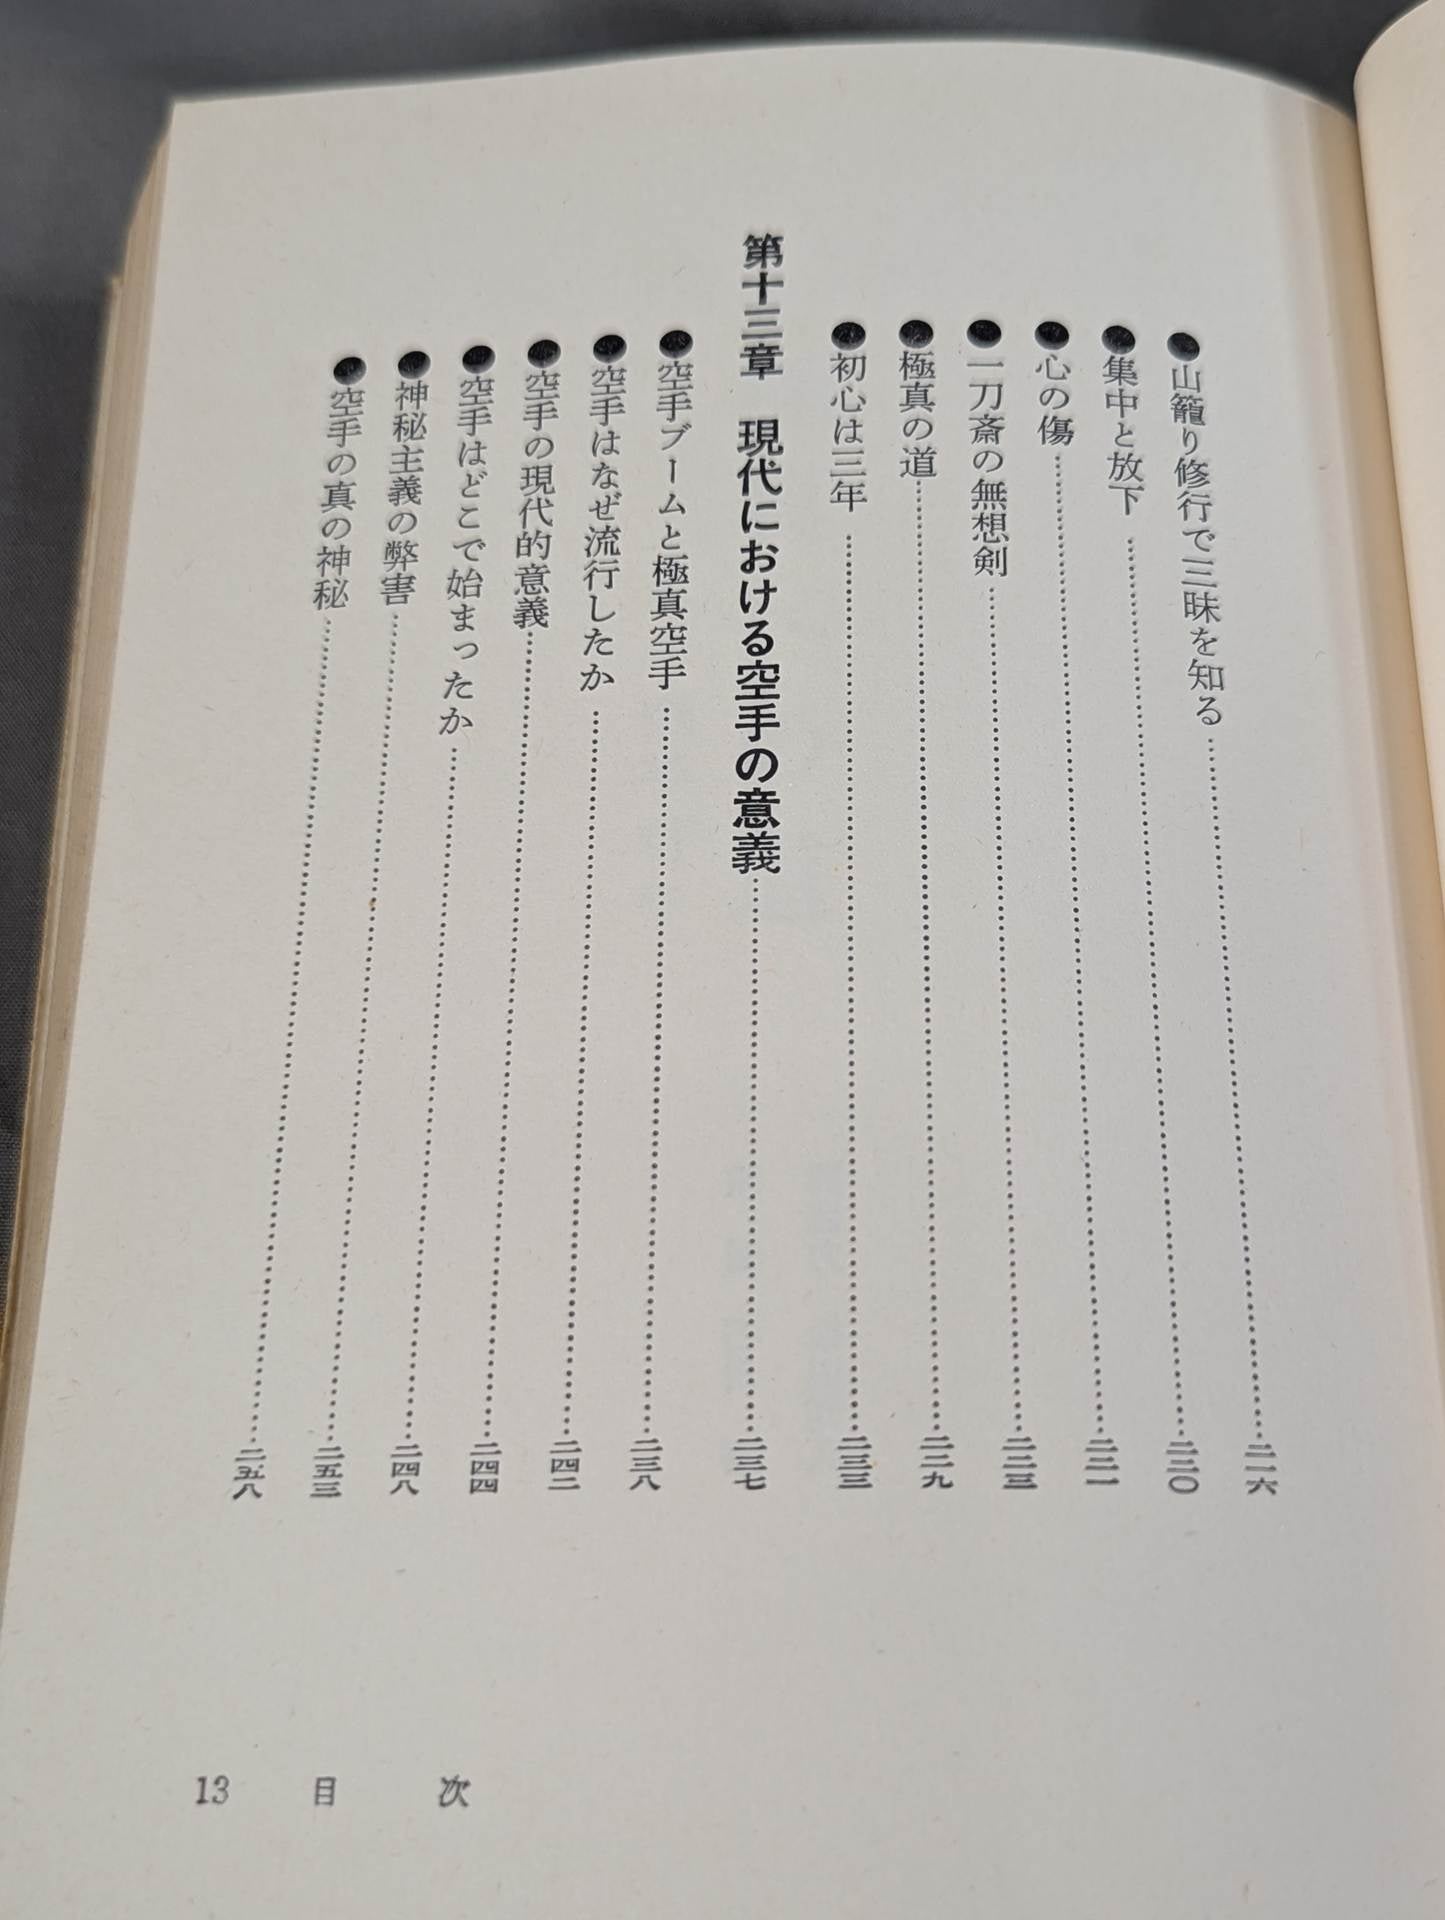 ●山籠り修行で三昧を知る……二一六
●集中と放下……二二〇
●心の傷……二二一
●一刀斎の無想剣……二二三
●極真の道……二二九
●初心は三年……二三三
第十三章　現代における空手の意義……二三七
●空手ブームと極真空手……二三八
●空手はなぜ流行したか……二四二
●空手の現代的意義……二四四
●空手はどこで始まったか……二四八
●神秘主義の弊害……二五三
●空手の真の神秘……二五八
13　目　次